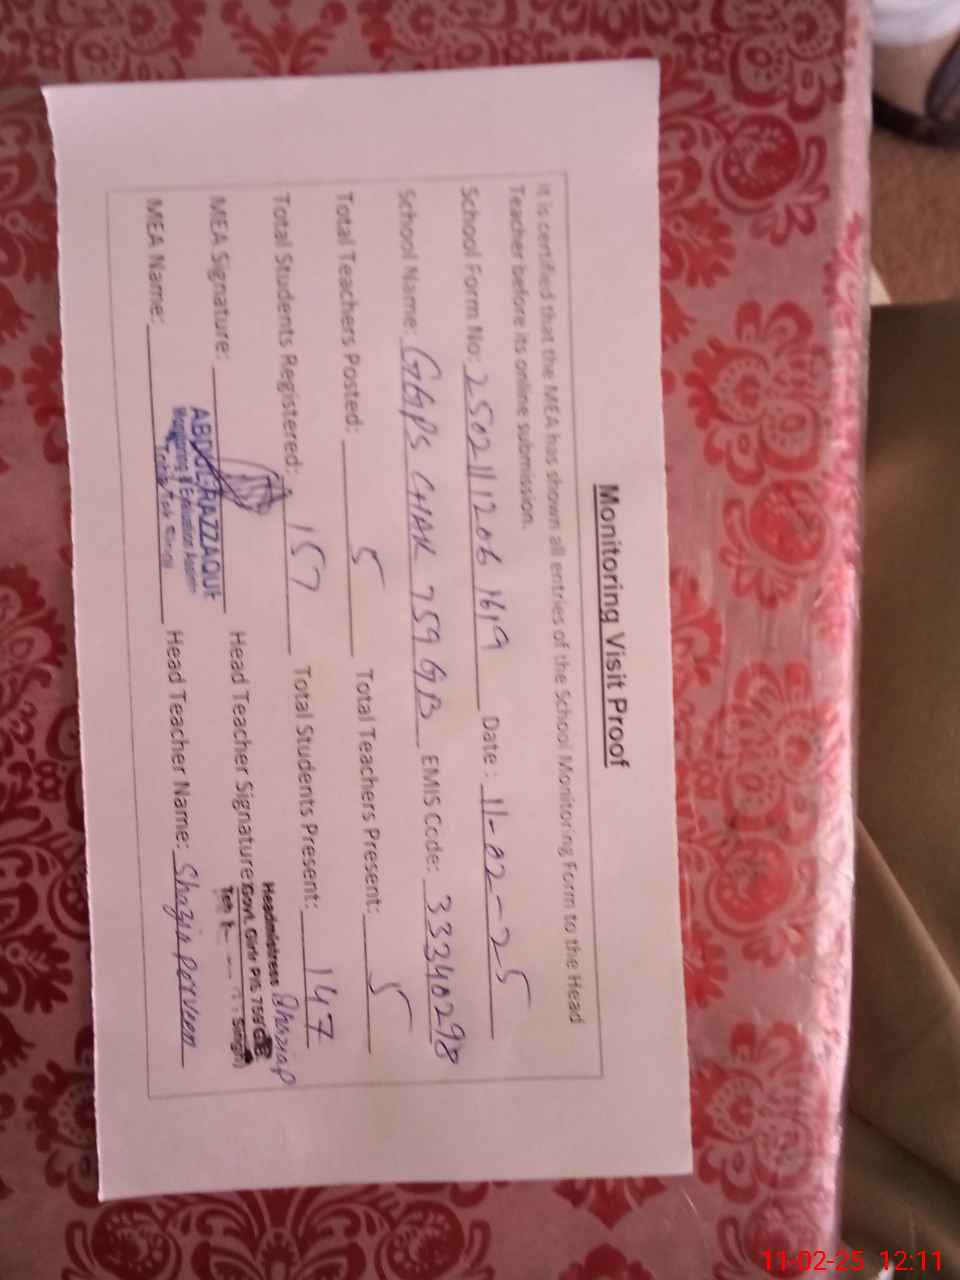 Monitoring Visit Proof
It is certified that the MEA has shown all entries of the School Monitoring Form to the Head
Teacher before its online submission.
School Form No: 250211 1206 1619 Date : 11-02-25
School Name: GGPS CHAK 759 GB EMIS Code: 33340298
Total Teachers Posted: 5 Total Teachers Present: 5
Total Students Registered: 157 Total Students Present: 147
MEA Signature: Head Teacher Signature: Shaziap
Headmistress
Govt. Girls P/S 759 GB
ABDUL RAZZAQUE
Monitoring & Evaluation
Toba Tek Singh
MEA Name: Head Teacher Name: Shazia Perveen
11-02-25 12:11